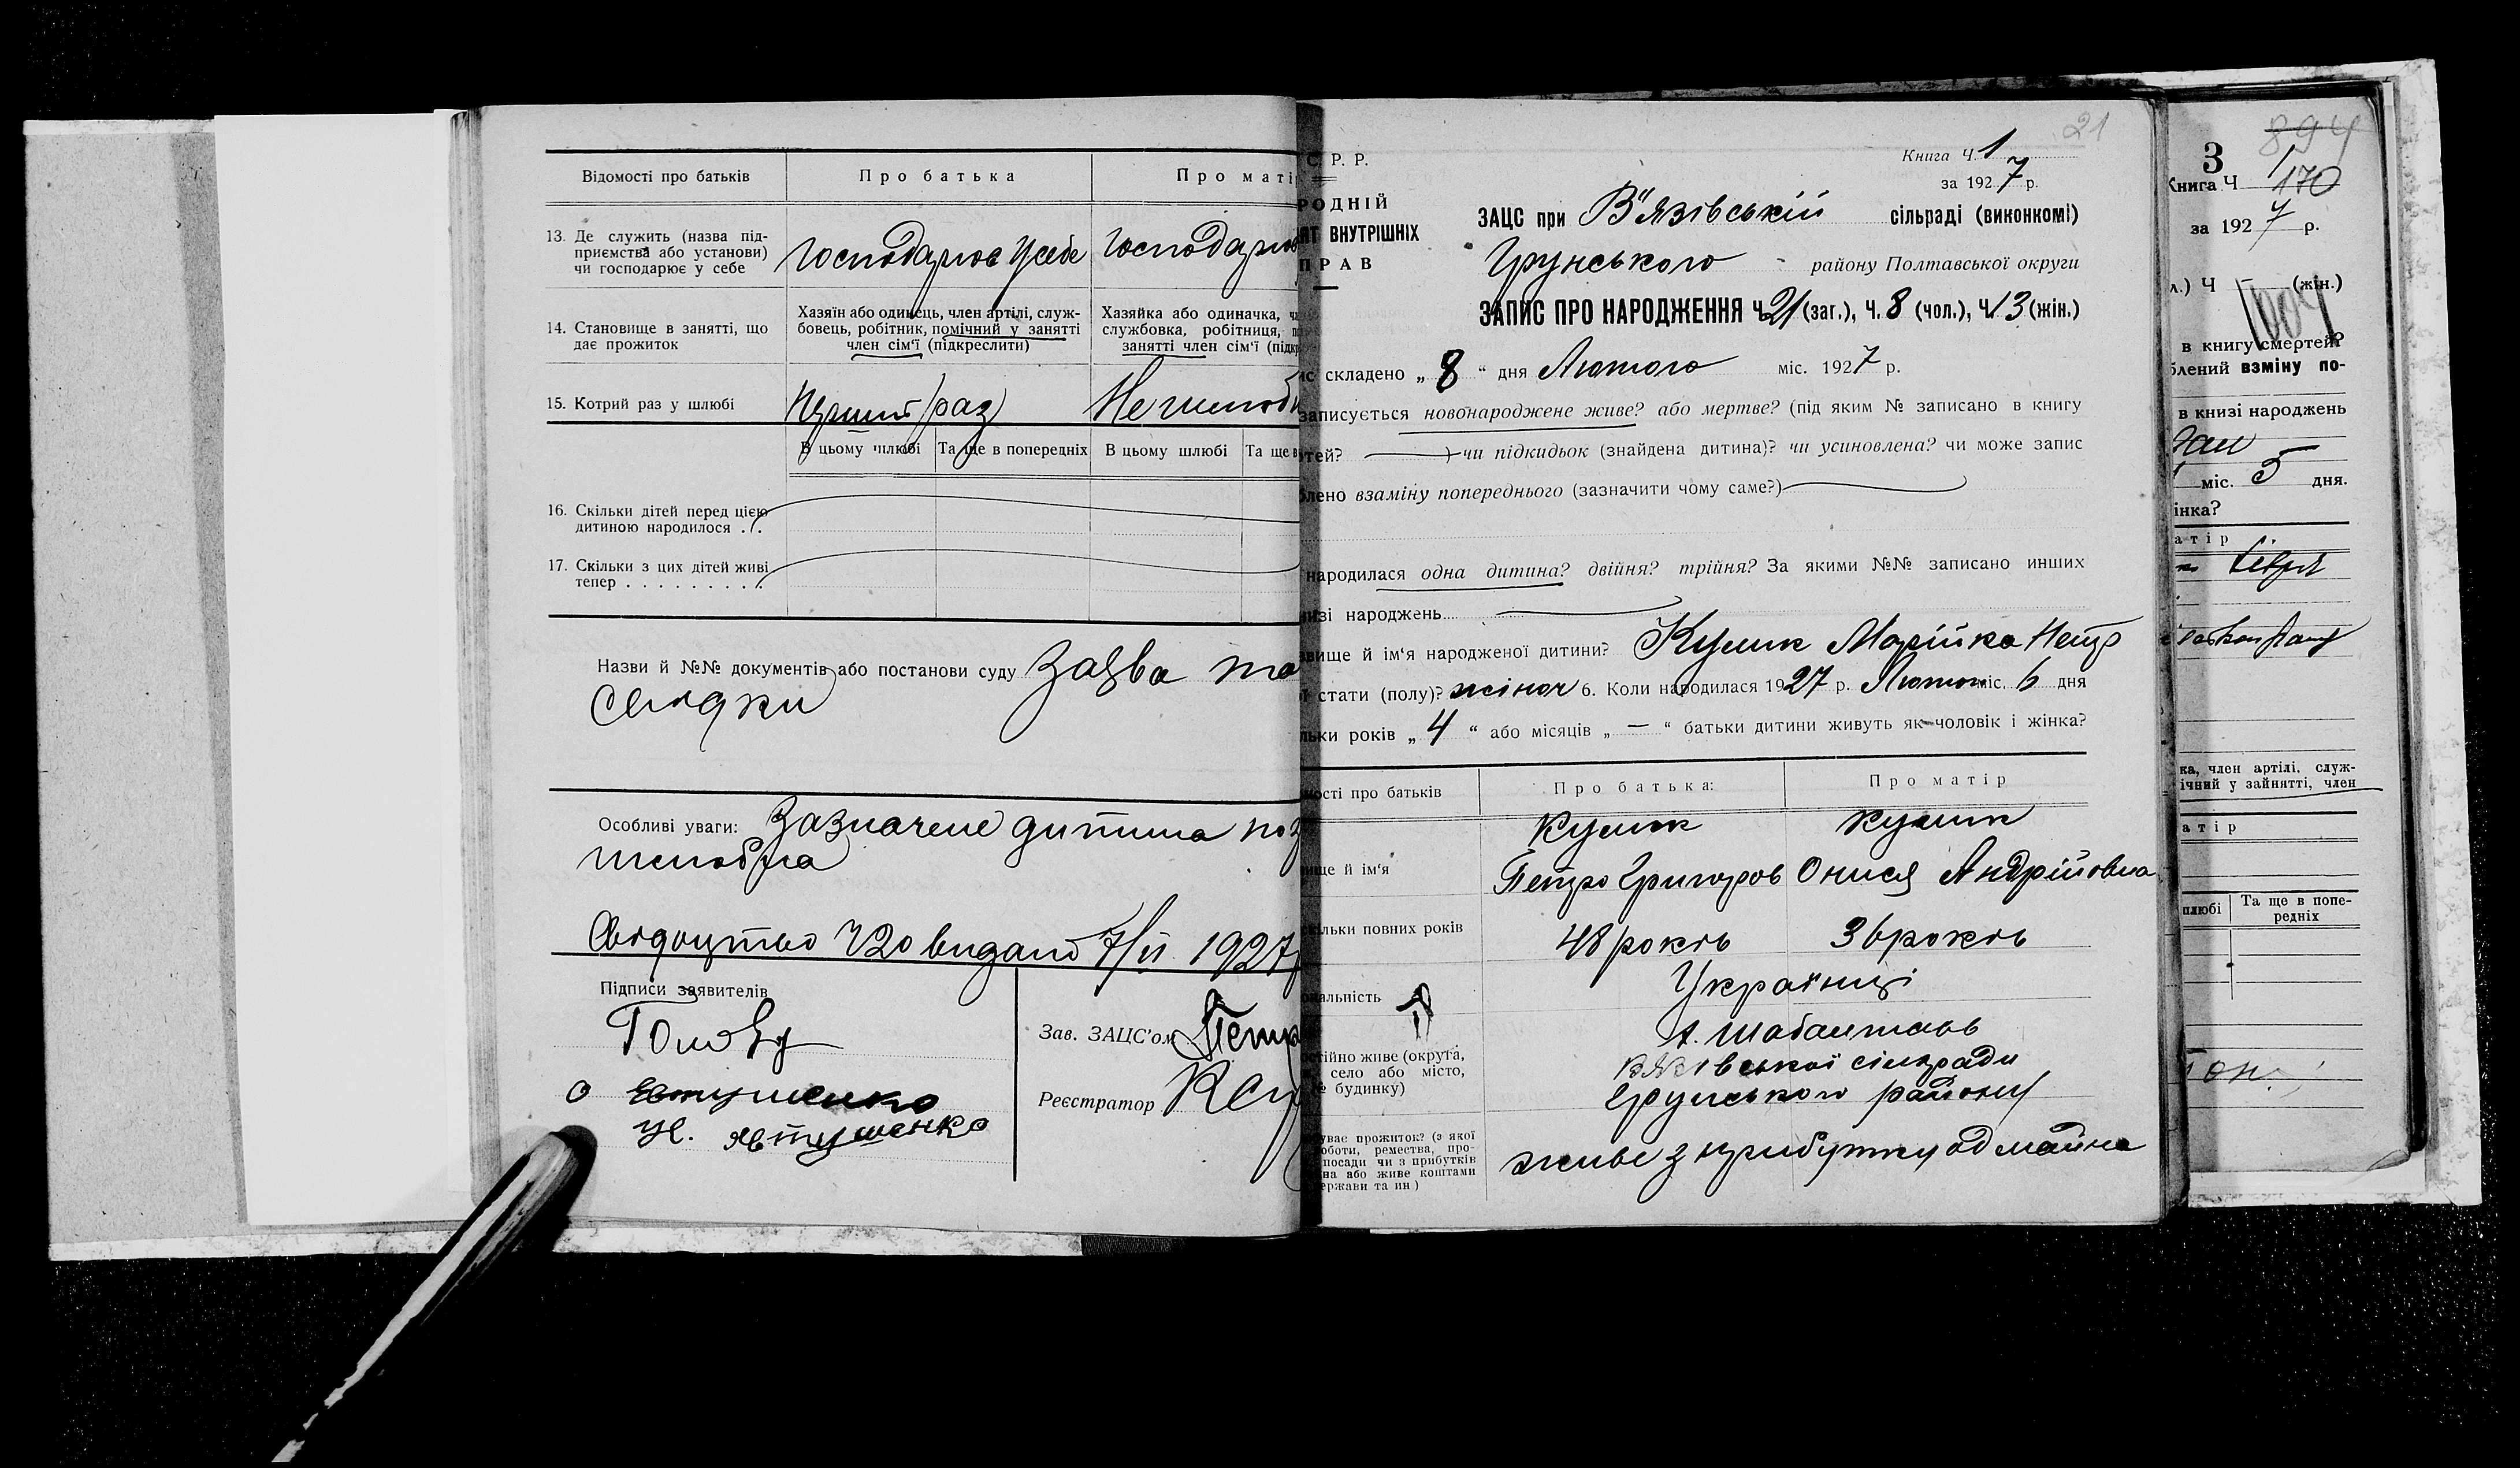 Відомості про батьків
Про батька
Про маті
13. Де служить (назва під-
приємства або установи)
чи господарює у себе
Господарює у себе
Господарює
14. Становище в занятті, що
дає прожиток
Хазяїн або одинець, член артілі, служ-
бовець, робітник, помічний у занятті
член сім'ї (підкреслити)
Хазяйка або одиначка, ч
службовка, робітниця, п
занятті член сім'ї (підкр
15. Котрий раз у шлюбі
раз
Не шлюбн
В цьому шлюбі
Та ще в попередніх
В цьому шлюбі
Та ще в
16. Скільки дітей перед цією
дитиною народилося . .
17. Скільки з цих дітей живі
тепер . . . . . . . . .
Назви й №№ документів або постанови суду Заява та
свідки
Особливі уваги: Зазначене дитина поз
шлюбна
Свідоцтво Ч20 видано 7/II 1927р
Підписи заявителів
Зав. ЗАЦС'ом Петр
О Євтушенко
Реєстратор
Явтушенко
21
С. Р. Р.
Книга Ч. 1
за 1927 р.
РОДНІЙ
АТ ВНУТРІШНІХ
ПРАВ
ЗАЦС при В'язівській сільраді (виконкомі)
Грунського району Полтавської округи
ЗАПИС ПРО НАРОДЖЕННЯ Ч 21 (заг.), Ч. 8 (чол.), Ч 13 (жін.)
ис складено „ 8 “ дня Лютого міс. 1927 р.
записується новонароджене живе? або мертве? (під яким № записано в книгу
тей? ) чи підкидьок (знайдена дитина)? чи усиновлена? чи може запис
блено взаміну попереднього (зазначити чому саме?)
народилася одна дитина? двійня? трійня? За якими №№ записано инших
изі народжень
вище й ім'я народженої дитини? Кулик Марійка Петр
ї стати (полу)? жіноч 6. Коли народилася 1927 р. Лютого міс. 6 дня
льки років „ 4 “ або місяців „ — “ батьки дитини живуть як чоловік і жінка?
мості про батьків
Про батька:
Про матір
вище й ім'я
Кулик
Петро Григоров
Кулик
Онися Андрійовна
кільки повних років
48 років
36 років
ональність
Українці
остійно живе (округа,
село або місто,
№ будинку)
х. Шабалтаїв
В'язівської сільради
Грунського району
уває прожиток? (з якої
оботи, ремества, про-
посади чи з прибутків
на або живе коштами
ержави та ин)
живе з прибутку од майна
3
894
Книга Ч 1
170
за 1927 р.
л.) Ч (жін.)
1004
в книгу смертей?
блений взміну по-
в книзі народжень
міс. 5 дня.
інка?
атір
ка, член артілі, служ-
ічний у зайнятті, член
атір
шлюбі
Та ще в попе-
редніх